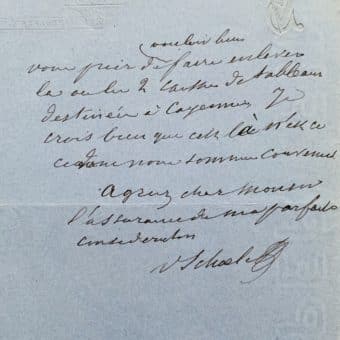 vouloir bien
vous prier de faire enlever
la ou les 2 caisses de tableaux
destinées à Cayenne Je
crois bien que c'est là n'est ce
dont nous sommes convenus
agréez cher Monsieur
l'assurance de ma parfaite
considération
V Schœlc